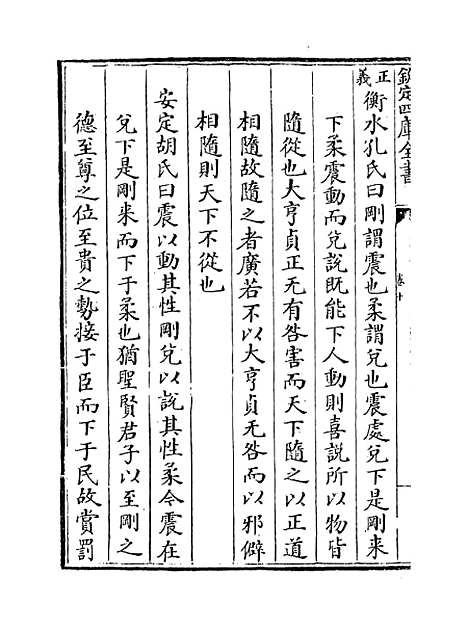 欽定四庫全書
卷十
正義
衡水孔氏曰剛謂震也柔謂兌也震處兌下是剛来
下柔震動而兌說既能下人動則喜說所以物皆
隨從也大亨貞正无有咎害而天下隨之以正道
相隨故隨之者廣若不以大亨貞无咎而以邪僻
相隨則天下不從也
安定胡氏曰震以動其性剛兌以說其性柔今震在
兌下是剛来而下于柔也猶聖賢君子以至剛之
德至尊之位至貴之勢接于臣而下于民故賞罰